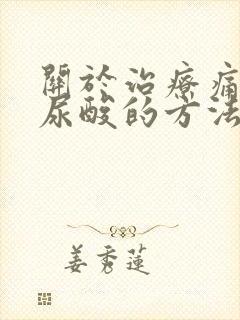 關於治療痛
尿酸的方法
姜秀蓮